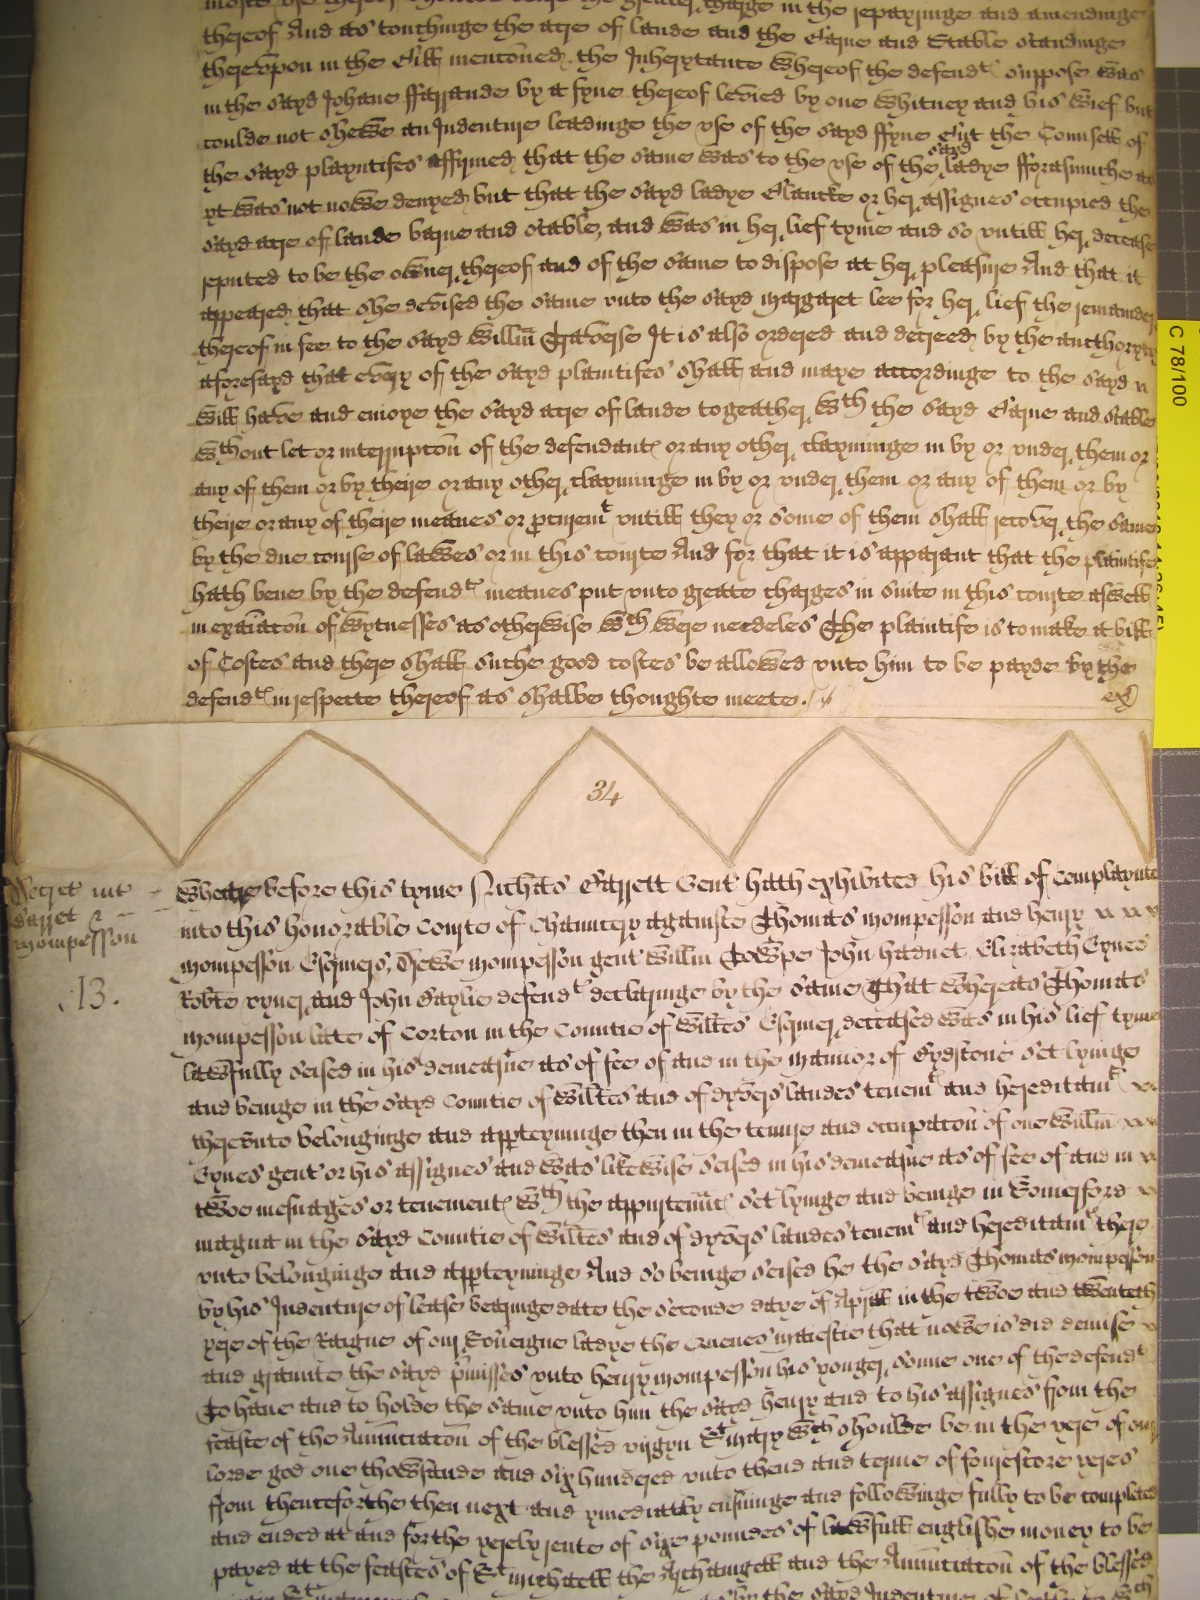 moste use therof shoulde beare the greater charge in the repayringe and amendinge
thereof And as touchinge the acre of lande and the Barne and Stable standinge
therevpon in the Bill mencioned, the Inherytance whereof the defendtes suppose was
in the sayd Johane ffarrande by a fyne thereof levied by one Whitney and his wief but
coulde not shewe an Indenture leadinge the vse of the sayd ffyne But the Counsell of
the sayd playntifes affirmed that the same was to the vse of the sayd ladye fforasmuche as
yt was not nowe denyed but that the sayd ladye Clarcke or her assignes occupied the
sayd acre of lande barne and stable, and was in her lief tyme and so vntill her decease
reputed to be the owner thereof and of the same to dispose at her pleasure And that it
appeared that she devised the same vnto the sayd margaret lee for her lief the remainder
thereof in fee to the sayd Willm Traverse It is also ordered and decreed by the aucthorytye
aforesayd that every of the sayd plaintifes shall and maye accordinge to the sayd w
will have and enioye the sayd acre of lande togeather wth the sayd Barne and stable
wthout let or interrupcon of the defendantes or any other clayminge in by or vnder them or
any of them or by theire or any other clayminge in by or vnder them or any of them or by
theire or any of theire meanes or procuremt vntill they or some of them shall recover the same
by the due course of lawes or in this courte And for that it is apparant that the plaintife
hath bene by the defendtes meanes put vnto greate charges in suite in this courte aswell
in exaiacon of wytnesses as otherwise wch were needeles The plaintife is to make a bill
of Costes and there shall suche good costes be allowed vnto him to be payde by the
defendtes in respecte thereof as shalbe thoughte meete.
exd
34
Decret int
Barret &
mompesson
13.
Wheare before this tyme Nichas Barrett Gent hath exhibited his bill of complaynte
into this honorable Courte of Chauncery againste Thomas mompesson and henry
mompesson Esquiers, Drewe mompesson gent Willm Towpe John hadnet Elizabeth Eynes
Robte vyner and John Baylie defendtes declaringe by the same That whereas Thomas
mompesson late of Corton in the Countie of Wiltes Esquier deceased was in his lief tyme
lawfully seised in his demeasne as of fee of and in the mannor of Gydstone set lyinge
and beinge in the sayd Countie of Wiltes and of dyvers landes tenemtes and hereditamtes
therevnto belonginge and apperteyninge then in the tenure and occupacon of one Willm
Eynes gent or his assignes and was likewise seised in his demeasne as of fee of and in
twoe mesuages or tenementes wth the appurtennces set lyinge and beinge in Somerford
magna in the sayd Countie of Wiltes and of dyvers landes tenemtes and hereditamtes there
vnto belonginge and apperteyninge And so beinge seised he the sayd Thomas mompesson
by his Indenture of lease bearinge date the seconde daye of Aprill in the twoe and twenteth
yere of the Raigne of our Soveraigne ladye the Queenes maiestie that nowe is did demise
and graunte the sayd pmisses vnto henry mompesson his yonger sonne one of the defendtes
To have and to holde the same vnto him the sayd henry and to his assignes from the
feaste of the Annunciacon of the blessed virgyn St mary wch shoulde be in the yere of our
lorde god one thowsande and six hundered vnto thend and terme of fourescore yeres
from thenceforthe then next and ymediatly ensuinge and followinge fully to be completed
and ended at and for the yerely rente of sixe poundes of lawfull englishe money to be
payed at the feastes of St michaell the Archangell and the Annunciacon of the blessed